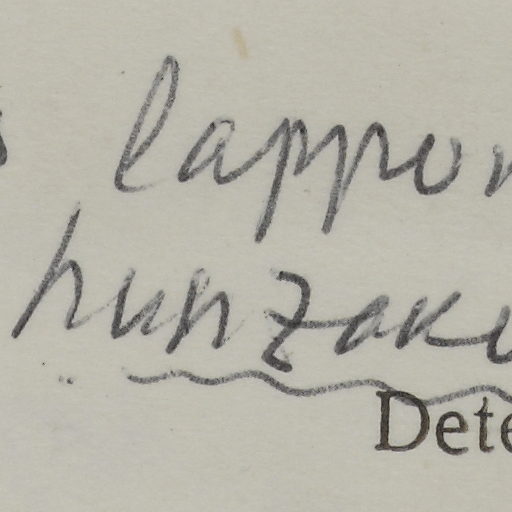 lappon
hunzaku
Dete